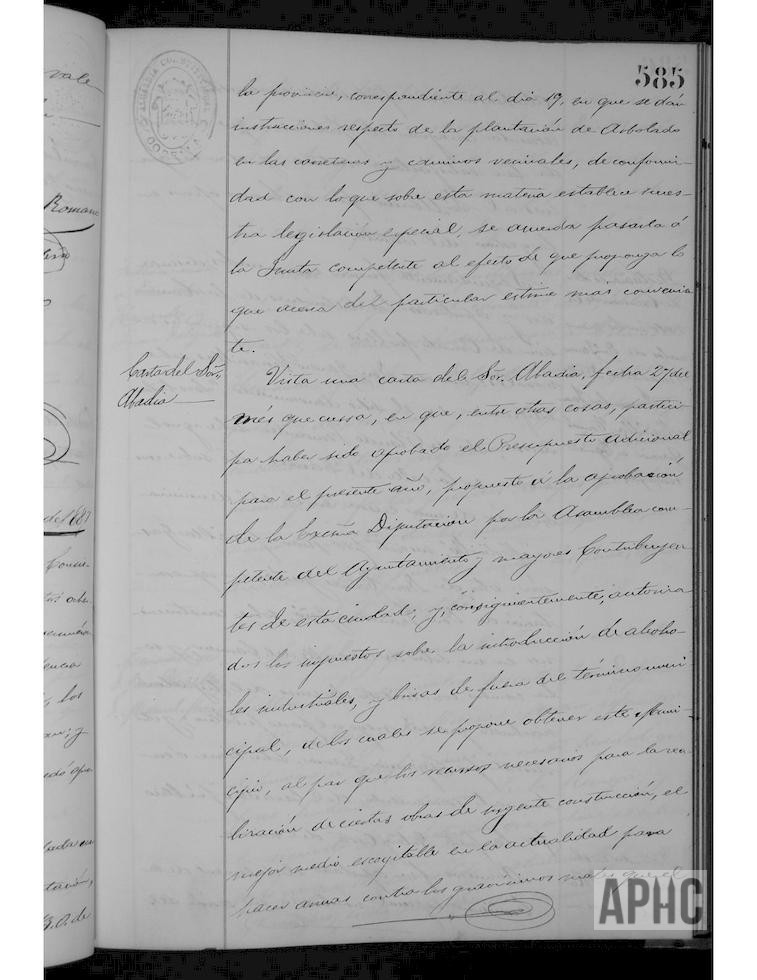 585
la provincia, correspondiente al dia 19, en que se dán
instrucciones respecto de la plantación de Arbolado
en las carreteras y caminos vecinales, de conformi-
dad con lo que sobre esta materia establece nues-
tra legislación especial, se acuerda pasarla á
la Junta competente al efecto de que proponga lo
que acerca del particular estime más convenien
te.
Carta del Sor.
Abadia
Vista una carta del Sor. Abadia, fecha 27 del
més que cursa, en que, entre otras cosas, partici-
pa haber sido aprobado el Presupuesto adicional
para el presente año, propuesto á la aprobación
de la Excma Diputacion por la Asamblea com-
petente del Ayuntamiento y mayores Contribuyen-
tes de esta ciudad; y, consiguientemente, autoriza
dos los impuestos sobre la introducción de alcoho-
les industriales, y brisas de fuera del termino muni
cipal, de los cuales se propone obtener este Muni-
cipio, al par que los recursos necesarios para la rea
lización de ciertas obras de urgente construcción, el
mejor medio escogitable en la actualidad para
hacer armas contra los gravisimos males que el
vale
Romano
del 1887
los
B.O. de
APHC